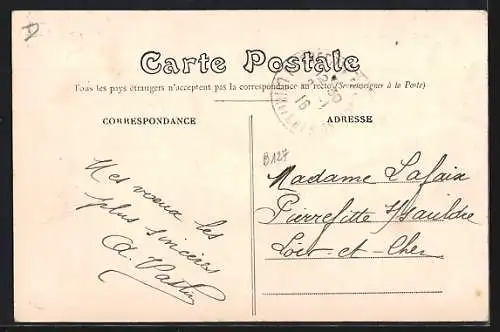 D
Carte Postale
Tous les pays étrangers n'acceptent pas la correspondance au recto (Se renseigner à la Poste)
CORRESPONDANCE
ADRESSE
B127
Mes voeux les
plus sincères
Madame Lafaix
Pierrefitte s/Sauldre
Loir-et-Cher